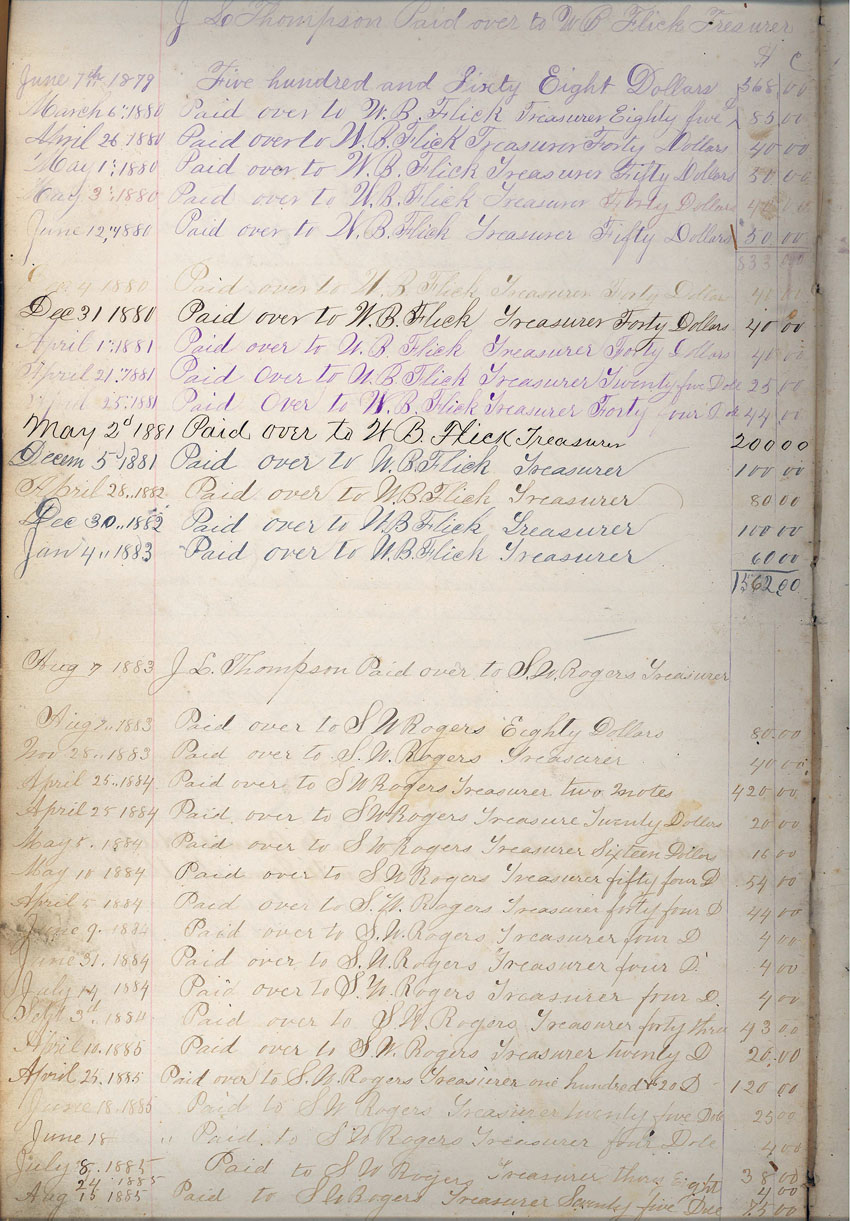 J L Thompson Paid over to W B Flick Tresurer
$ C
June 7th 1879 Five hundred and Sixty Eight Dollars 568 00
March 6 1880 Paid over to W.B. Flick Treasurer Eighty five 85 00
April 26 1880 Paid over to W.B. Flick Treasurer Forty Dollars 40 00
May 1 1880 Paid over to W.B. Flick Treasurer Fifty Dollars 50 00
May 3 1880 Paid over to W.B. Flick Treasurer Forty Dollars 40 00
June 12 1880 Paid over to W.B. Flick Treasurer Fifty Dollars 50 00
833 00
1880 Paid over to W.B. Flick Treasurer Forty Dollar 40 00
Dec 31 1880 Paid over to W.B. Flick Treasurer Forty Dollars 40 00
April 1 1881 Paid over to W.B. Flick Treasurer Forty Dollars 40 00
April 21 1881 Paid Over to W.B. Flick Treasurer Twenty five Dolls 25 00
25 1881 Paid Over to W.B. Flick Treasurer Forty four 44 00
May 2d 1881 Paid over to W B. Flick Treasurer 200 00
Decem 5 1881 Paid over to W.B. Flick Treasurer 100 00
April 28 1882 Paid over to W.B. Flick Treasurer 80 00
Dec 30 1882 Paid over to W.B Flick Treasurer 100 00
Jan 4 1883 Paid over to W.B. Flick Treasurer 60 00
1562 00
Aug 7 1883 J L. Thompson Paid over to S.W. Rogers Treasurer
Aug 7 1883 Paid over to S W Rogers Eighty Dollars 80 00
Nov 28 1883 Paid over to S.W. Rogers Treasurer 40 00
April 25 1884 Paid over to S W Rogers Treasurer two notes 420 00
April 25 1884 Paid over to S W Rogers Treasure Twenty Dollars 20 00
May 5 1884 Paid over to S W Rogers Treasurer Sixteen Dollars 16 00
May 10 1884 Paid over to S W Rogers Treasurer fifty four D 54 00
April 5 1884 Paid over to S.W. Rogers Treasurer forty four D 44 00
June 9 1884 Paid over to S.W. Rogers Treasurer four D 4 00
June 31 1884 Paid over to S.W. Rogers Treasurer four D. 4 00
July 14 1884 Paid over to S.W. Rogers Treasurer four D 4 00
Sept 3d 1884 Paid over to S.W. Rogers Treasurer forty thre 43 00
April 10 1885 Paid over to S.W. Rogers Treasurer twenty D 20 00
April 25 1885 Paid over to S.W. Rogers Treasurer one hundred + 20 D 120 00
June 18 1885 Paid to S W Rogers Treasurer twenty five Dols 25 00
June 18 " Paid to S W Rogers Treasurer four Dols 4 00
July 8 1885 Paid to S W Rogers Treasurer Eight 38 00
24 1885 4 00
Aug 15 1885 Paid to S W Rogers Treasurer Seventy five 75 00